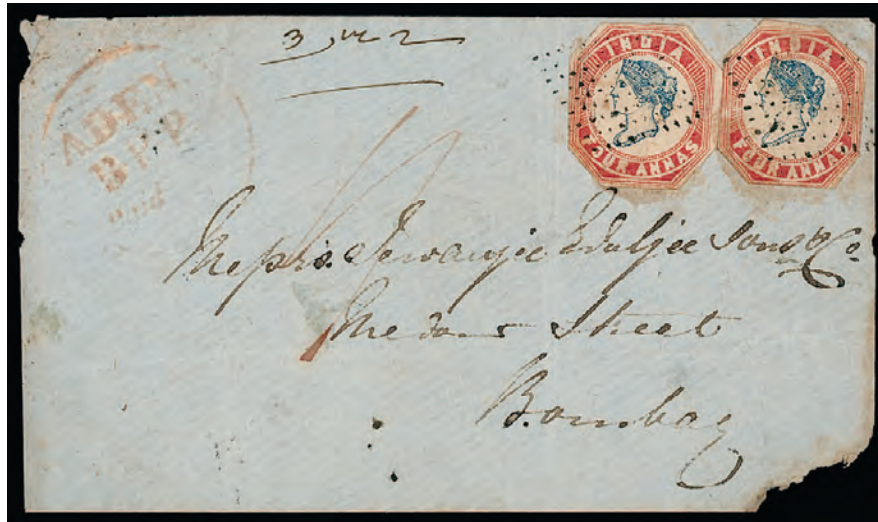 INDIA
FOUR ANNAS
INDIA
FOUR ANNAS
ADEN
Messrs. Jewanjee Eduljee Sons & Co.
Street
Bombay